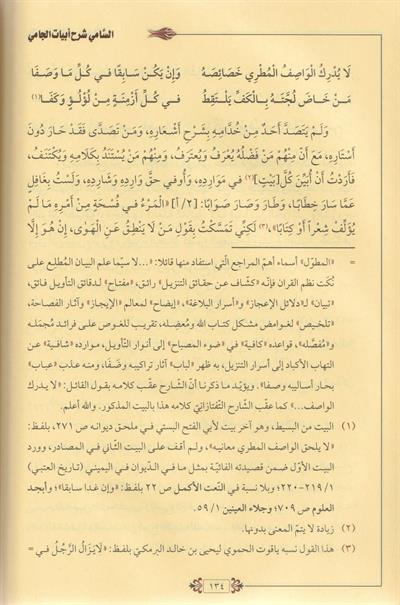 السَّامي شرح أبيات الجامي
لَا يُدْرِكُ الْوَاصِفُ الْمُطْرِي خَصَائِصَهُ وَإِنْ يَكُـنْ سَـابِقًا فِـي كُـلِّ مَـا وَصَـفَا
مَـنْ خَـاضَ لُجَّتَـهُ بِـالْكَفِّ يَلْـتَقِطُ فِـي كُـلِّ أَزْمِنَـةٍ مِـنْ لُؤْلُـؤٍ وَكَفَـا(١)
وَلَـمْ يَتَصَـدَّ أَحَـدٌ مِـنْ خُدَّامِـهِ بِشَـرْحِ أَشْعَارِهِ، وَمَـنْ تَصَـدَّى فَقَـدْ حَـارَ دُونَ
أَسْتَارِهِ، مَعَ أَنَّ مِنْهُمْ مَنْ فَضْلُهُ يُعْرَفُ وَيُعْتَرَفُ، وَمِنْهُمْ مَنْ يُسْتَنَدُ بِكَلَامِهِ وَيُكْتَنَفُ،
فَأَرَدْتُ أَنْ أُبَيِّنَ كُلَّ [بَيْتٍ](٢) فِي مَوَارِدِهِ، وَأُوفِي حَقَّ وَارِدِهِ وَشَارِدِهِ، وَلَسْتُ بِغَافِلٍ
عَمَّا سَارَ خِطَابًا، وَطَارَ وَصَارَ صَوَابًا: [٢/أ] «الْمَرْءُ فِي فُسْحَةٍ مِنْ أَمْرِهِ مَا لَمْ
يُؤَلِّفْ شِعْراً أَوْ كِتَابًا»،(٣) لَكِنِّي تَمَسَّكْتُ بِقَوْلِ مَنْ لَا يَنْطِقُ عَنِ الْهَوَى، إِنْ هُوَ إِلَّا
= «المطوّل» أسماء أهمّ المراجع الّتي استفاد منها قائلا: «...لا سيّما علم البيان المُطلِع على
نُكَت نظم القرآن فإنّه «كشّاف عن حقائق التنزيل» رائق، «مفتاح» لدقائق التأويل فائق،
«تبيان» لـ«دلائل الإعجاز» و«أسرار البلاغة»، «إيضاح» لمعالم «الإيجاز» وآثار الفصاحة،
«تلخيص» لغوامض مشكل كتاب الله ومُعضِله، تقريب للغوص على فرائد مُجمَله
و«مُفصَّله»، قواعده «كافية» في «ضوء المصباح» إلى أنوار التّأويل، موارده «شافية» عن
التهاب الأكباد إلى أسرار التنزيل، به ظهر «لباب» آثار تراكيبه وصَفَا، ومنه عذب «عباب»
بحار أساليبه وصفا». ويؤيّد ما ذكرنا أنّ الشّارح عقّب كلامه بقول القائل: «لا يدرك
الواصف...» كما عقّب الشّارح التّفتازانيّ كلامه هذا بالبيت المذكور. والله أعلم.
(١) البيت من البسيط، وهو آخر بيت لأبي الفتح البستي في ملحق ديوانه ص ٢٧١، بلفظ:
«لا يلحق الواصف المطري معانيه»، ولم أقف على البيت الثّاني في المصادر، وورد
البيت الأوّل ضمن قصيدته الفائيّة بمثل ما في الدّيوان في اليميني (تاريخ العتبي)
٢١٩/١-٢٢٠؛ وبلا نسبة في النّعت الأكمل ص ٢٢ بلفظ: «وإن غدا سابقا»؛ وأبجد
العلوم ص ٧٠٩؛ وجلاء العينين ٥٩/١.
(٢) زيادة لا يتمّ المعنى بدونها.
(٣) هذا القول نسبه ياقوت الحموي ليحيى بن خالد البرمكيّ بلفظ: «لَا يَزَالُ الرَّجُلُ فِي =
١٣٤